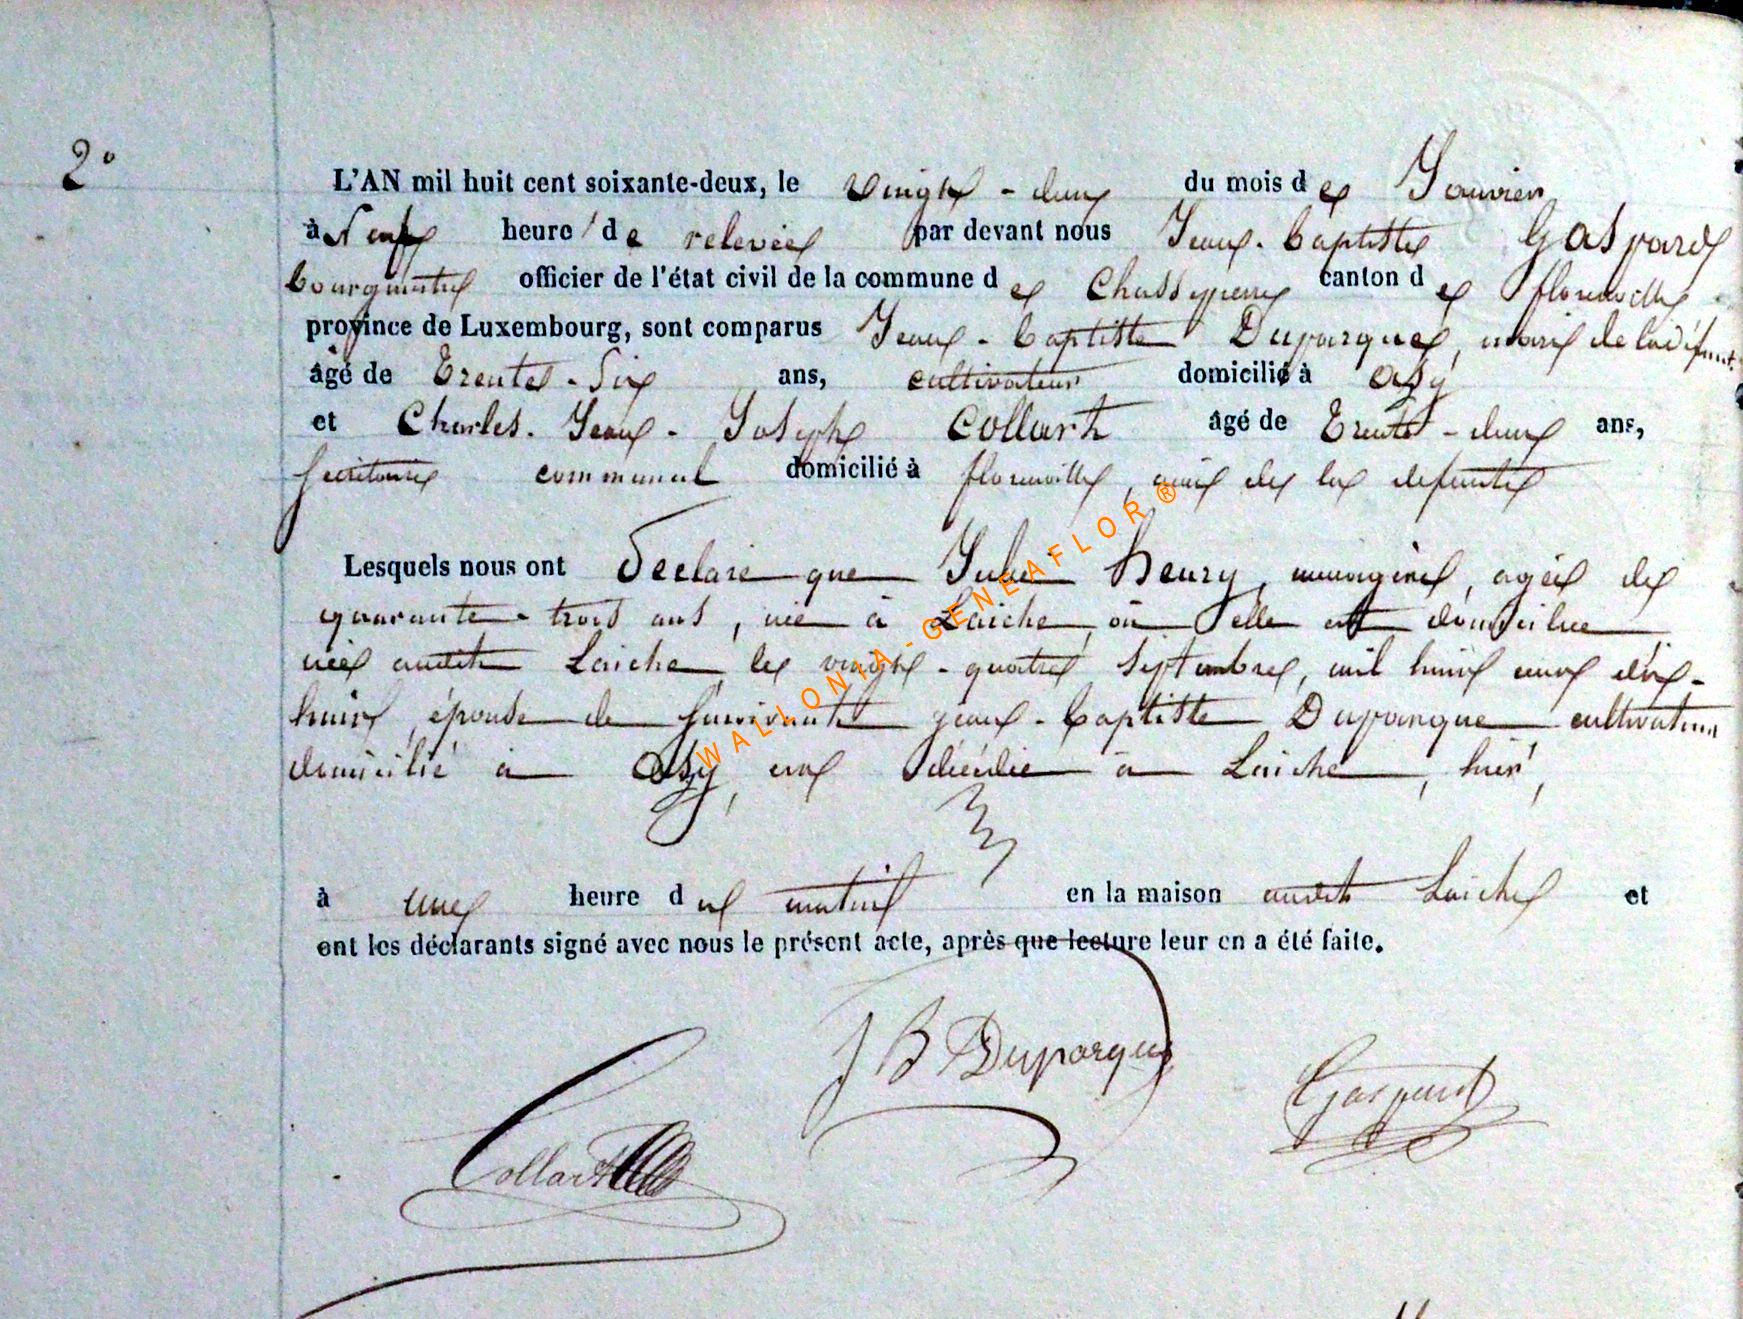 2°
L'AN mil huit cent soixante-deux, le vingt-deux du mois de Janvier
à Neuf heure de relevée par devant nous Jean-Baptiste Gaspard
bourgmestre officier de l'état civil de la commune de Chassepierre canton de florenville
province de Luxembourg, sont comparus Jean-baptiste Duparque, mari de la défunte
âgé de Trente-Six ans, cultivateur domicilié à
et Charles-Jean-Joseph Collart âgé de Trente-deux ans,
Secrétaire communal domicilié à florenville, ami de la défunte
Lesquels nous ont Déclaré que Julie henry, ménagère, agée de
quarante-trois ans, née à Laiche, où elle est domiciliée
née audit Laiche le vingt-quatre Septembre, mil huit cent dix-
huit, épouse de Survivante jean-baptiste Duparque cultivateur
domicilié à est décédée à Laiche, hier,
à une heure du matin en la maison audit Laiche et
ont les déclarants signé avec nous le présent acte, après que lecture leur en a été faite.
J B Duparque
Gaspard
Collart
WALLONIA-GENEAFLOR®